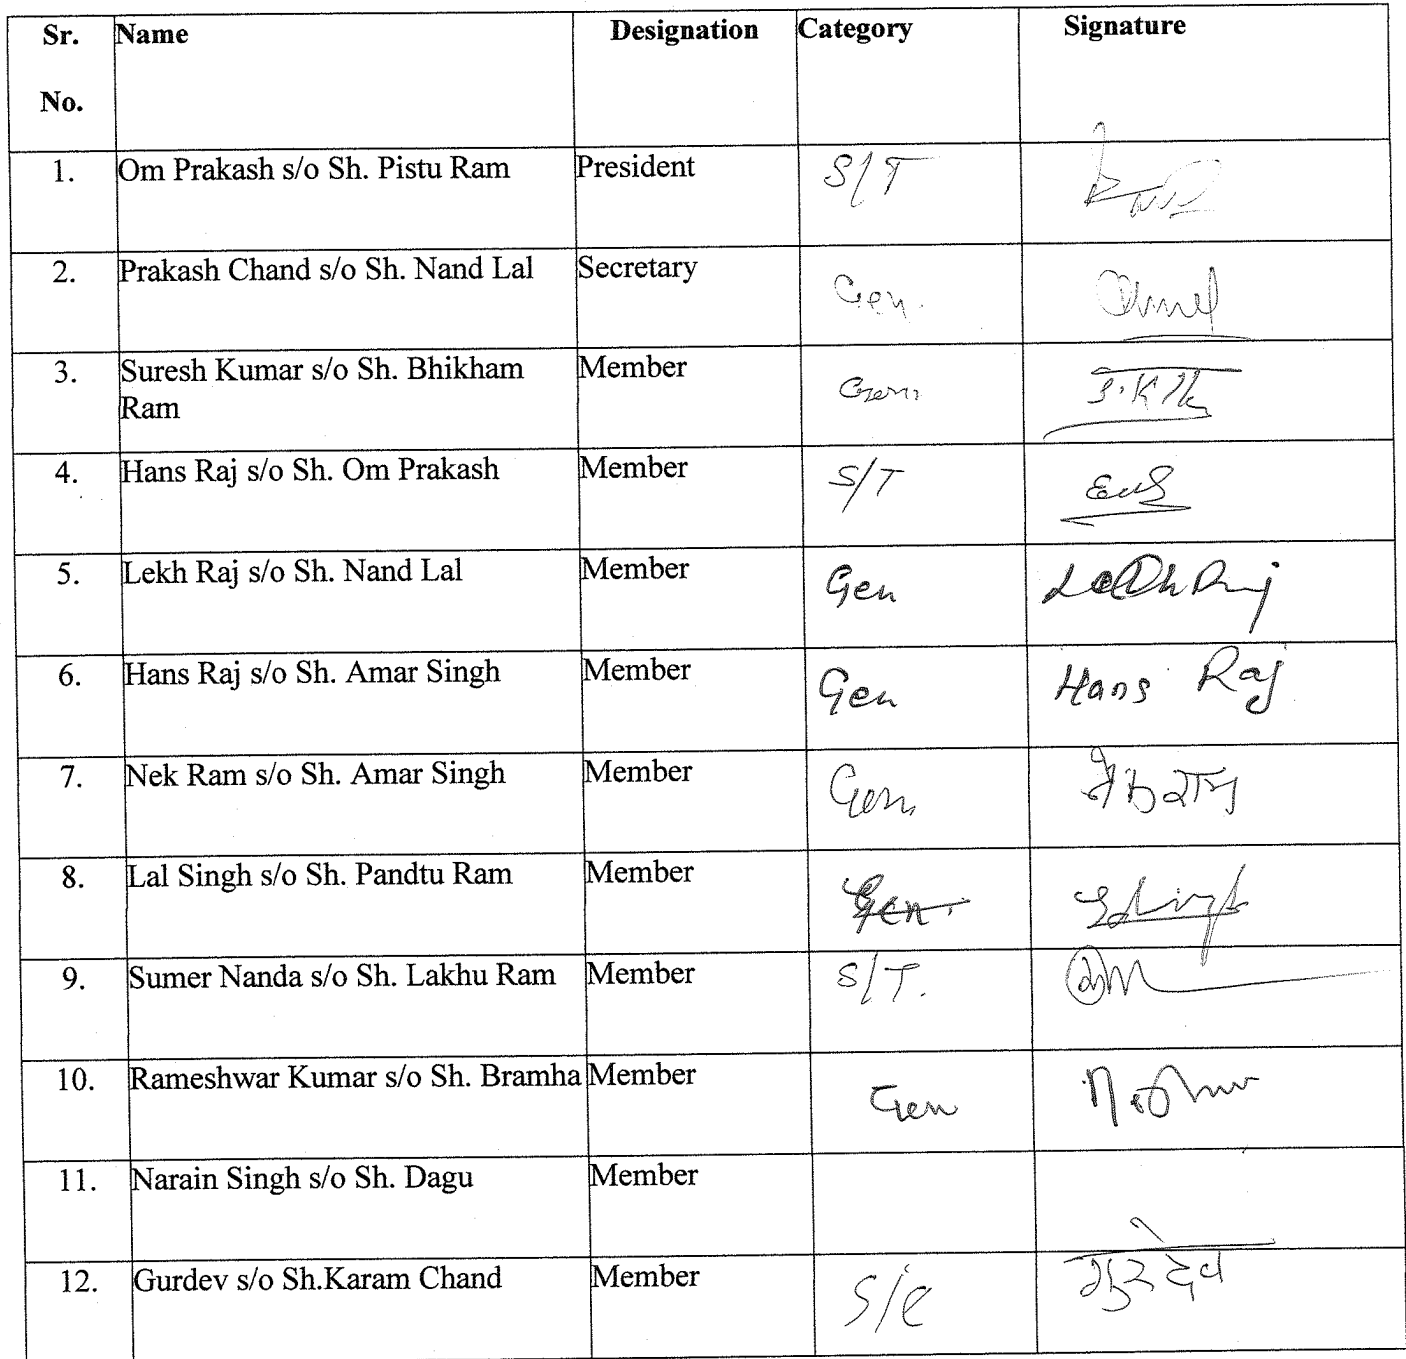 Sr. Name Designation Category Signature
No.
1. Om Prakash s/o Sh. Pistu Ram President S/T
2. Prakash Chand s/o Sh. Nand Lal Secretary Gen.
3. Suresh Kumar s/o Sh. Bhikham Member Gen.
Ram
4. Hans Raj s/o Sh. Om Prakash Member S/T
5. Lekh Raj s/o Sh. Nand Lal Member Gen Lekh Raj
6. Hans Raj s/o Sh. Amar Singh Member Gen Hans Raj
7. Nek Ram s/o Sh. Amar Singh Member Gen. नेकराम
8. Lal Singh s/o Sh. Pandtu Ram Member Gen.
9. Sumer Nanda s/o Sh. Lakhu Ram Member S/T.
10. Rameshwar Kumar s/o Sh. Bramha Member Gen
11. Narain Singh s/o Sh. Dagu Member
12. Gurdev s/o Sh.Karam Chand Member S/C गुरदेव